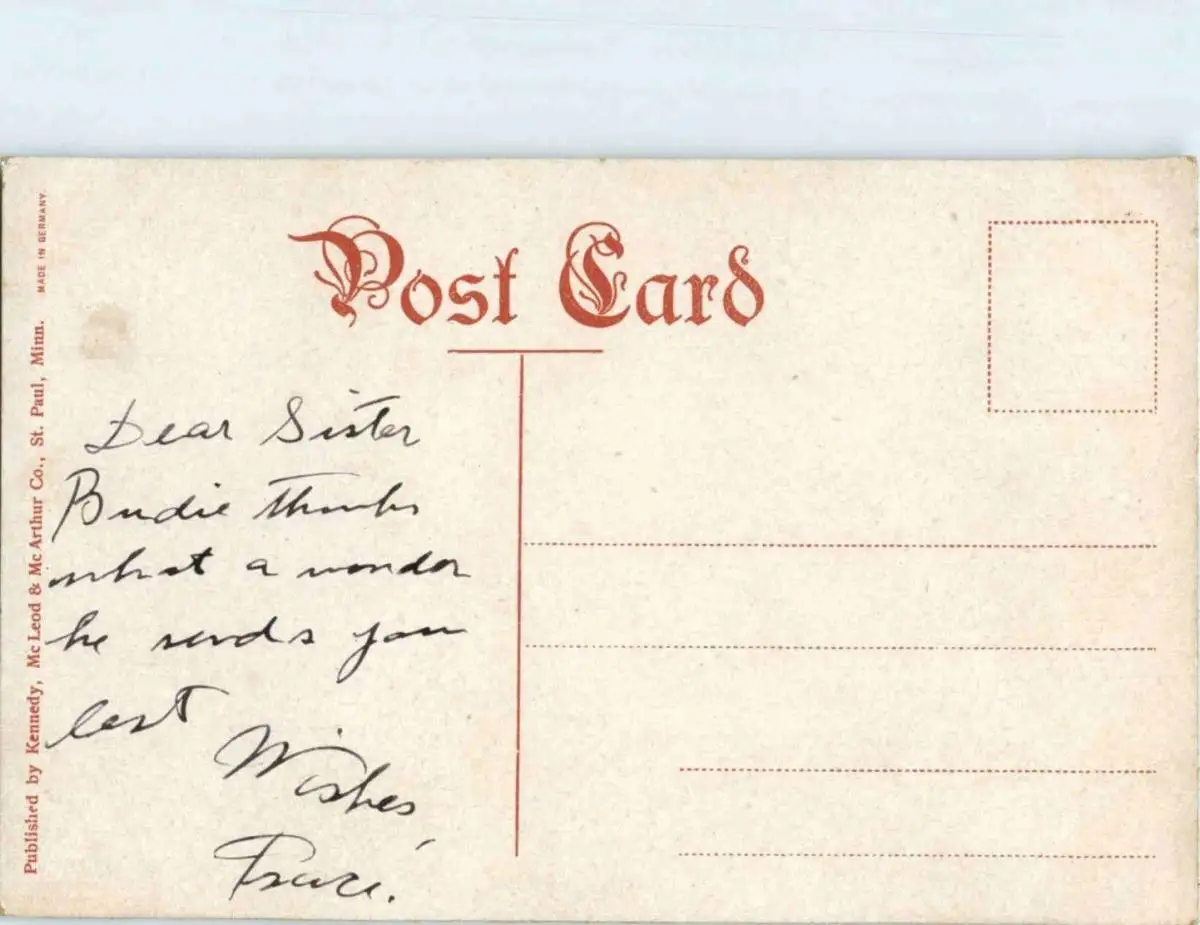 Post Card
Dear Sister
Budie thinks
what a wonder
he sends you
best
Wishes,
Published by Kennedy, McLeod & McArthur Co., St. Paul, Minn. MADE IN GERMANY